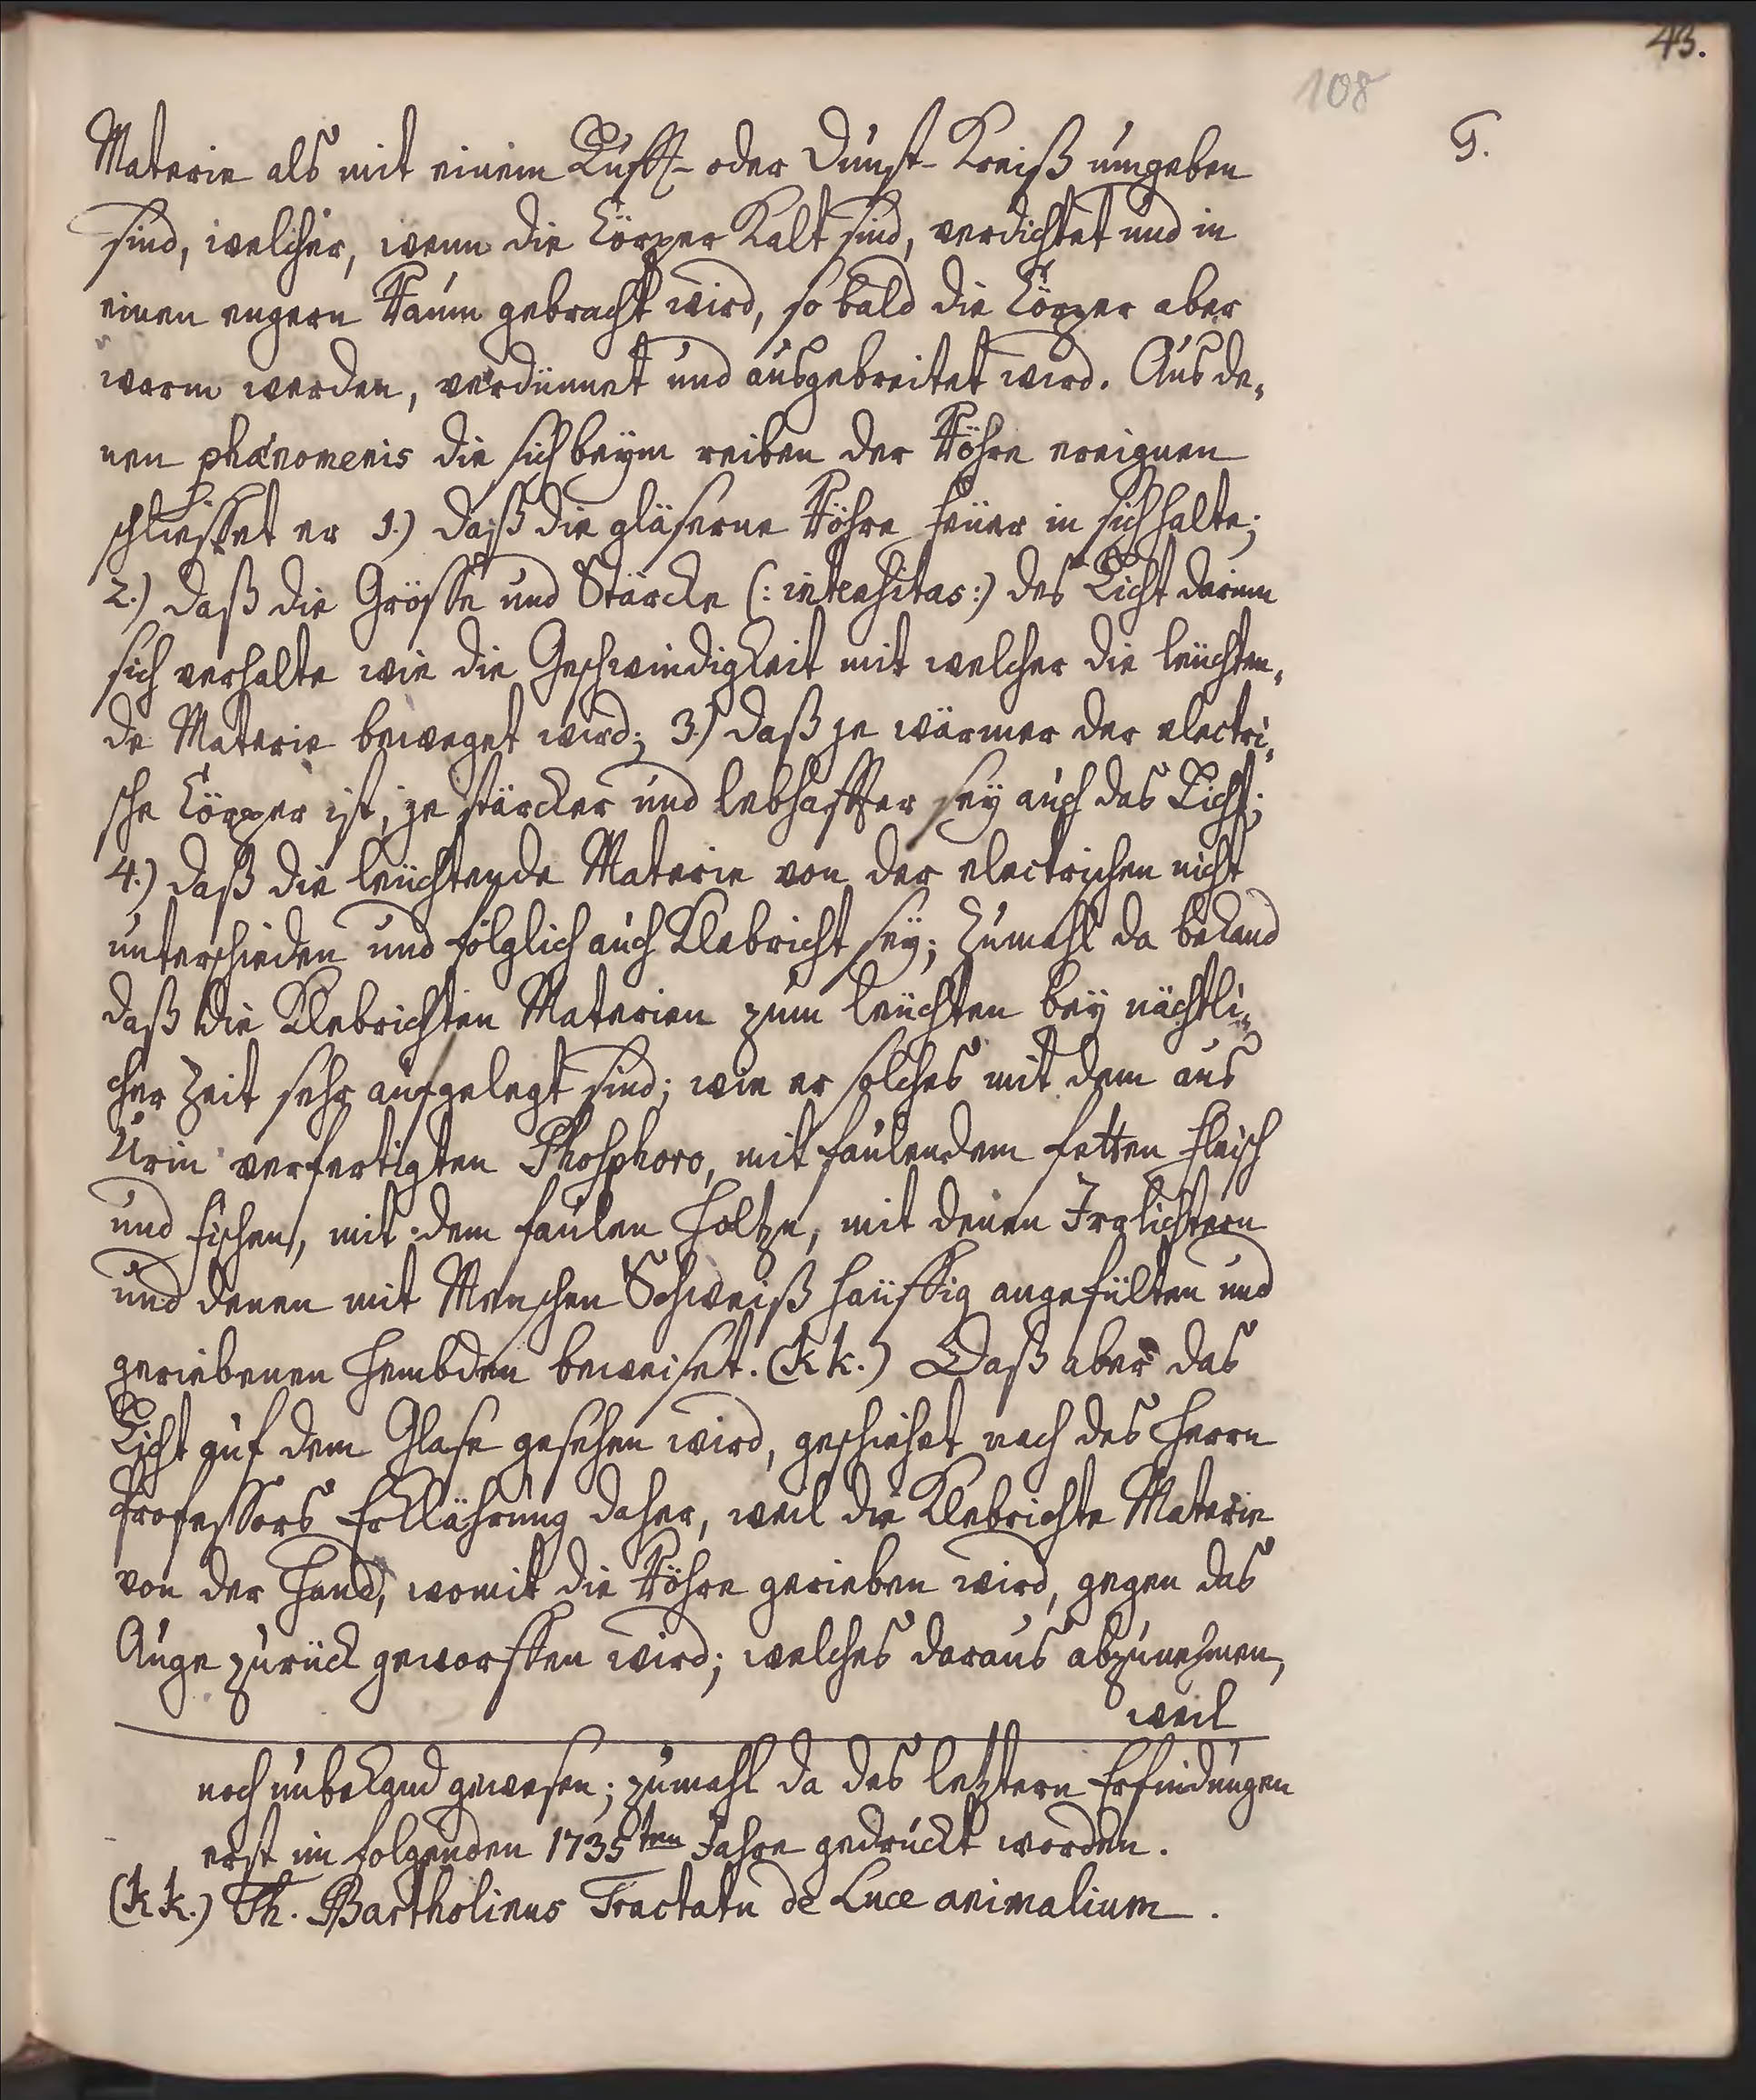 43.
108
G.
Materie als mit einem Lufft- oder Dunst-Kreiß umgeben
sind, welcher, wenn die Cörper kalt sind, verdichtet und in
einen engern Raum gebracht wird, so bald die Cörper aber
warm werden, verdünnet und ausgebreitet wird. Aus de-
nen phænomenis die sich beym reiben der Röhre ereignen
schliesset er 1.) daß die gläserne Röhre Feüer in sich halte;
2.) daß die Grösse und Stärcke (: intensitas :) des Licht darinn
sich verhalte wie die Geschwindigkeit mit welcher die leüchten-
de Materie beweget wird; 3.) daß je wärmer der electri-
sche Cörper ist, je stärcker und lebhaffter seÿ auch das Licht;
4.) daß die leüchtende Materie von der electrischen nicht
unterschieden und folglich auch klebricht seÿ; zumahl da bekand
daß die klebrichten Materien zum leüchten beÿ nächtli-
cher Zeit sehr aufgelegt sind; wie er solches mit dem aus
Urin verfertigten Phosphoro, mit faulendem fetten Fleisch
und Fischen, mit dem faulen Holtze, mit denen Irrlichtern
und denen mit Menschen Schweiß haüffig angefülten und
geriebenen Hembden beweiset. (kk.) Daß aber das
Licht auf dem Glase gesehen wird, geschiehet nach des Herrn
Professors Erklährung daher, weil die klebrichte Materie
von der Hand, womit die Röhre gerieben wird, gegen das
Auge zurück geworffen wird; welches daraus abzunehmen,
weil
noch unbekand gewesen; zumahl da des letztern Erfindungen
erst im folgenden 1735ten Jahre gedruckt worden.
(kk.) Th. Bartholinus Tractatu de Luce animalium.